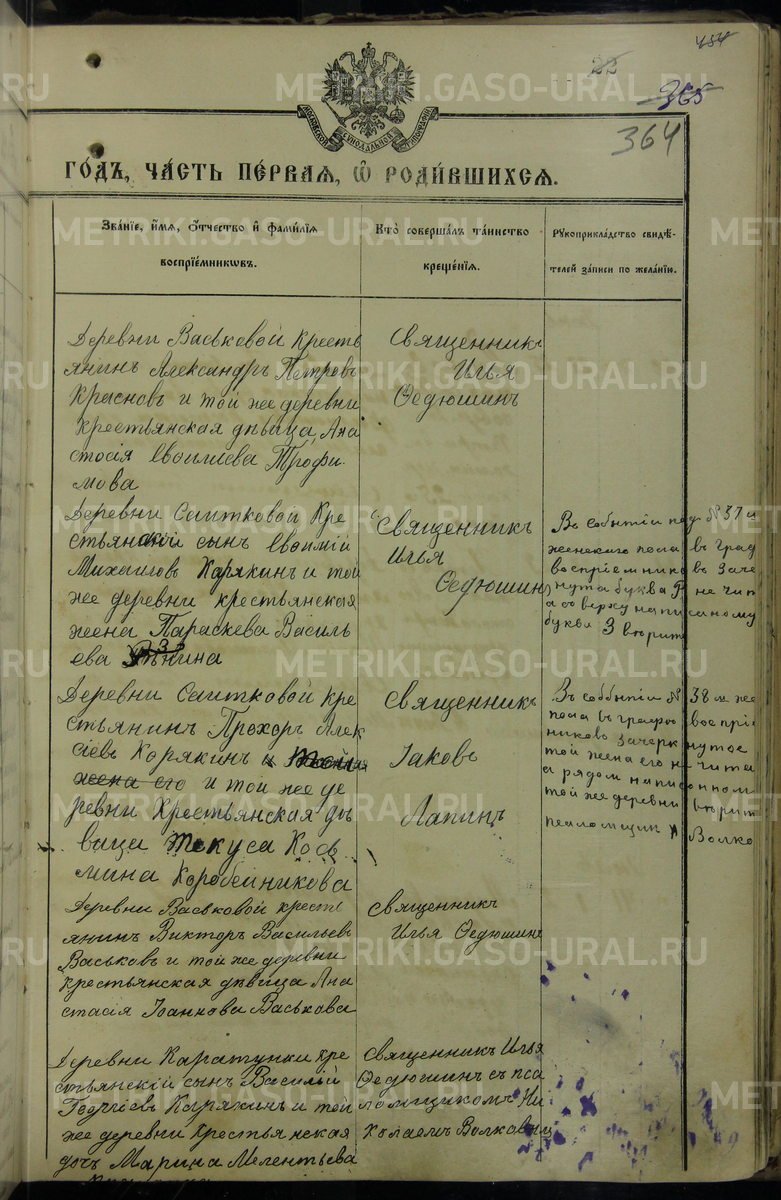 454
22
365
364
МОСКОВСКОЙ СИНОДАЛЬНОЙ ТИПОГРАФІИ
ГО́ДЪ, ЧА́СТЬ ПЕ́РВАЯ, Ѡ РОДИ́ВШИХСЯ.
Зва́ніе, и́мя, о́тчество и фами́лія
воспріе́мниковъ.
Кто̀ соверша́лъ та́инство
креще́нія.
Рукоприкла́дство свидѣ́-
телей за́писи по жела́нію.
Деревни Васьковой кресть
янинъ Александръ Петровъ
Красновъ и той же деревни
крестьянская дѣвица Ана
стасія Трофи-
мова
Священникъ
Илья
Ѳедюшинъ
Деревни Саитковой кре
стьянскій сынъ
Михаиловъ Карякинъ и той
же деревни крестьянская
жена Параскева Василь
ева
Священникъ
Илья
Ѳедюшинъ
Въ событіи под № 37 и
женскаго пола въ граф
воспріемнико въ заче
нута буква Р не чит
а въ верху написаному
буква З вѣрит
Деревни Саитковой кре
стьянинъ Прохоръ Алек
сѣевъ Корякинъ и
жена его и той же де
ревни Крестьянская дѣ
вица Кось
мина Коробейникова
Священникъ
Іаковъ
Лапинъ
Въ событіи № 38 м же
пола въ графѣ воспрі
никовъ зачеркнутое
той жена его не чита
а рядом написанном
той же деревни вѣрит
псаломщик Н Волко
Деревни Васьковой кресть
янинъ Викторъ Васильевъ
Васьковъ и той же деревни
крестьянская дѣвица Ана
стасія Іоаннова Васькова
Священникъ
Илья Ѳедюшинъ
Деревни Каратунки кре
стьянскій сынъ Василій
Карякинъ и той
же деревни крестьянская
дочь Марина Мелентьева
Священникъ Илья
Ѳедюшинъ съ пса
ломщикомъ Ни
колаемъ Волковым
METRIKI.GASO-URAL.RU